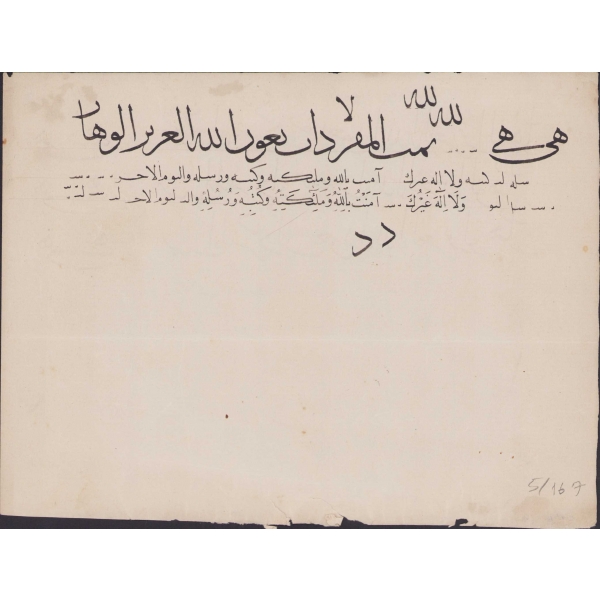 لله لله
هى هى تمت المفردات بعون الله العزيز الوهاب
ولا اله غيرك آمنت بالله وملئكته وكتبه ورسله واليوم الاخر
وَلَا اِلَهَ غَيْرُكَ آمَنْتُ بِاللهِ وَمَلٰئِكَتِهِ وَكُتُبِهِ وَرُسُلِهِ واليوم الاخر
د د
5/167